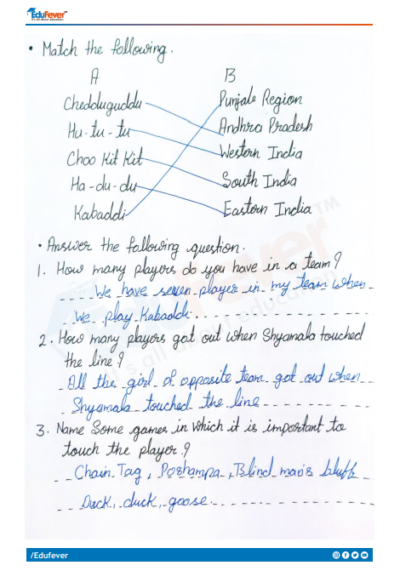 EduFever
• Match the following.
A B
Chedduguddu Punjab Region
Hu-tu-tu Andhra Pradesh
Choo Kit Kit Western India
Ha-du-du South India
Kabaddi Eastern India
• Answer the following question.
1. How many players do you have in a team?
We have seven player in my team when
We play Kabaddi
2. How many players got out when Shyamala touched
the line?
All the girl of opposite team got out when
Shyamala touched the line
3. Name Some games in which it is important to
touch the player?
Chain Tag, Poshampa, Blind man's bluff
Duck, duck, goose
/Edufever